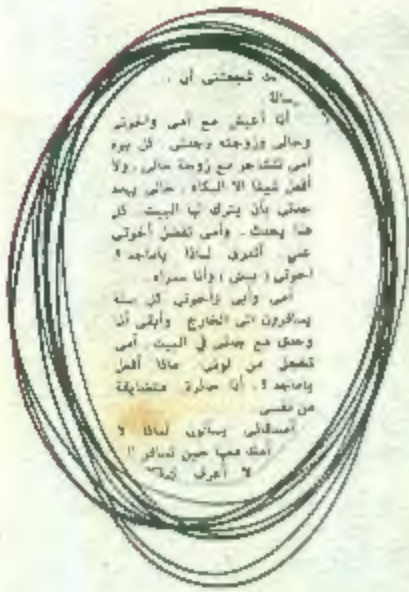 شجعتنى أن ..
رسالة
أنا أعيش مع أمى واخوتى
وخالى وزوجته وجدتى . كل يوم
أمى تتشاجر مع زوجة خالى . ولا
أفعل شيئا الا البكاء . خالى يهدد
جدتى بأن يترك لها البيت . كل
هذا يحدث . وأمى تفضل أخوتى
عنى . أتدرى لماذا ياماجد ؟
أخوتى ( بيض ) وأنا سمراء .
أمى وأبى وأخوتى كل سنة
يسافرون الى الخارج وأبقى أنا
وحدى مع جدتى فى البيت . أمى
تخجل من لونى . ماذا أفعل
ياماجد ؟ . أنا حائرة . متضايقة
من نفسى
أصدقائى يسألون لماذا لا
معها حين تسافر !!
لا أعرف